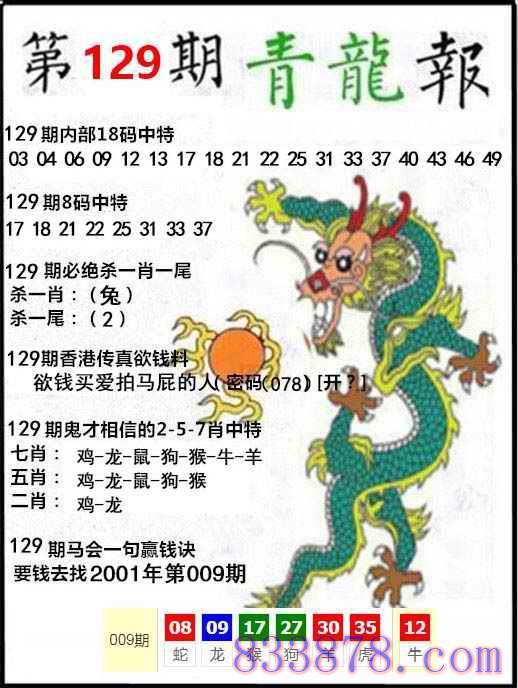 第129期青龍報
129期内部18码中特
03 04 06 09 12 13 17 18 21 22 25 31 33 37 40 43 46 49
129期8码中特
17 18 21 22 25 31 33 37
129期必绝杀一肖一尾
杀一肖：（兔）
杀一尾：（2）
129期香港传真欲钱料
欲钱买爱拍马屁的人（密码(078）[开？]
129期鬼才相信的2-5-7肖中特
七肖： 鸡-龙-鼠-狗-猴-牛-羊
五肖： 鸡-龙-鼠-狗-猴
二肖： 鸡-龙
129期马会一句赢钱诀
要钱去找2001年第009期
009期 08 09 17 27 30 35 12
蛇 龙 猴 狗 羊 虎 牛
833878.com